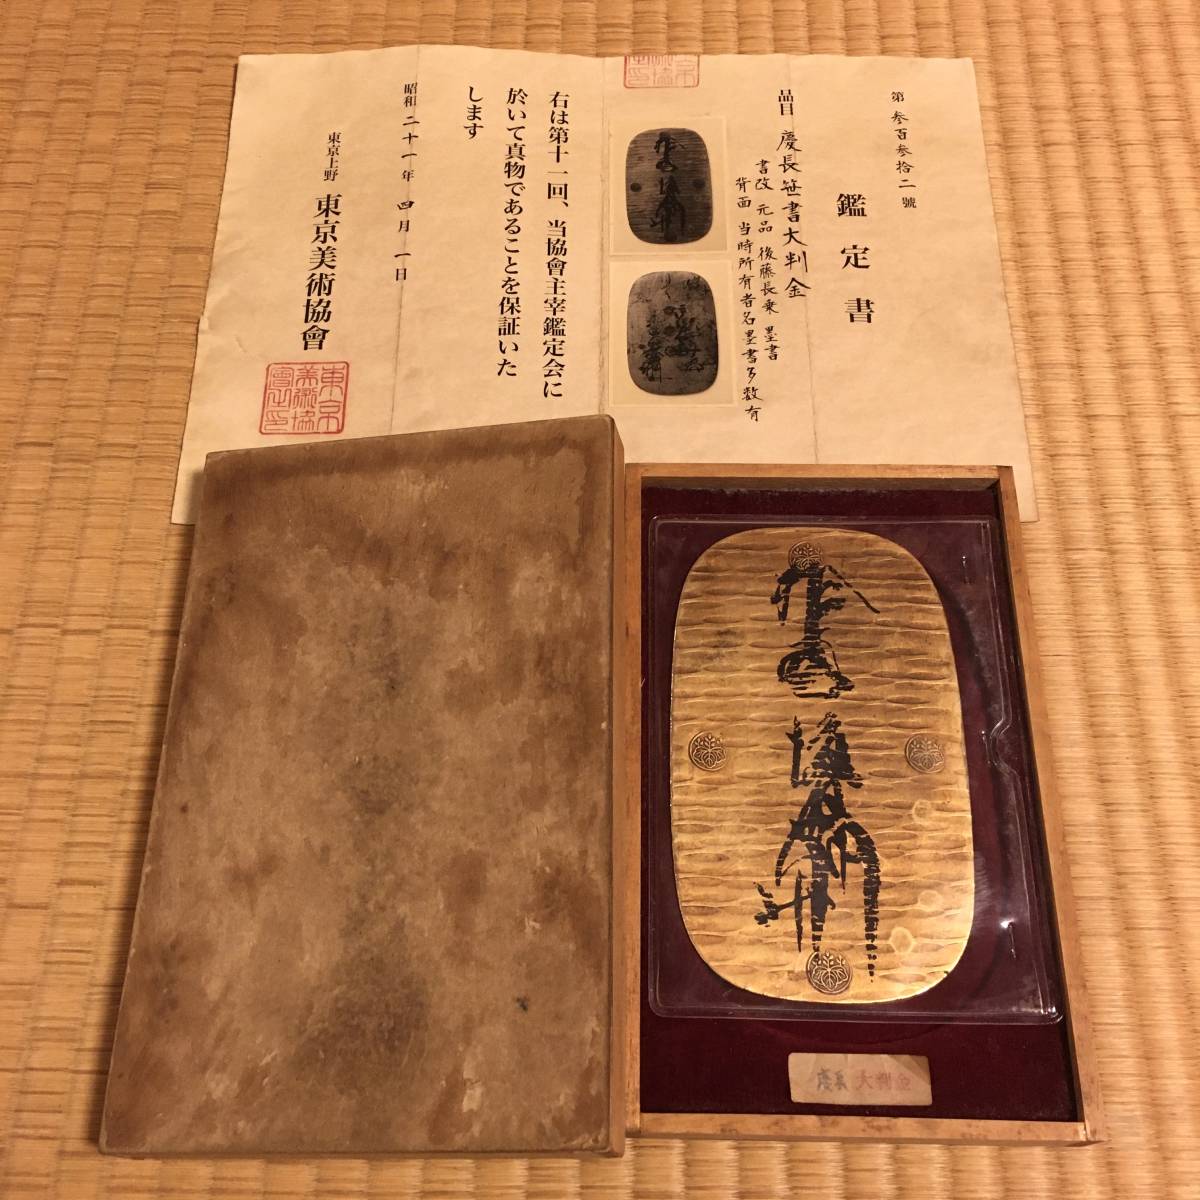 第参百参拾二號
鑑定書
品目 慶長笹書大判金
書改 元品 後藤長乗 墨書
背面 当時所有者名墨書多数有
右は第十一回、当協會主宰鑑定会に
於いて真物であることを保証いた
します
昭和二十一年四月一日
東京上野 東京美術協會
東京美術協會之印
拾両後藤
慶長 大判金